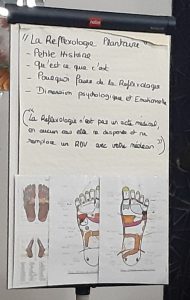 "La Réflexologie Plantaire"
- Petite Histoire
- Qu'est ce que c'est
- Pourquoi faire de la Réflexologie
- Dimension psychologique et Emotionnelle
("La Réflexologie n'est pas un acte médical,
en aucun cas elle ne dispense et ne
remplace un RDV avec votre médecin")